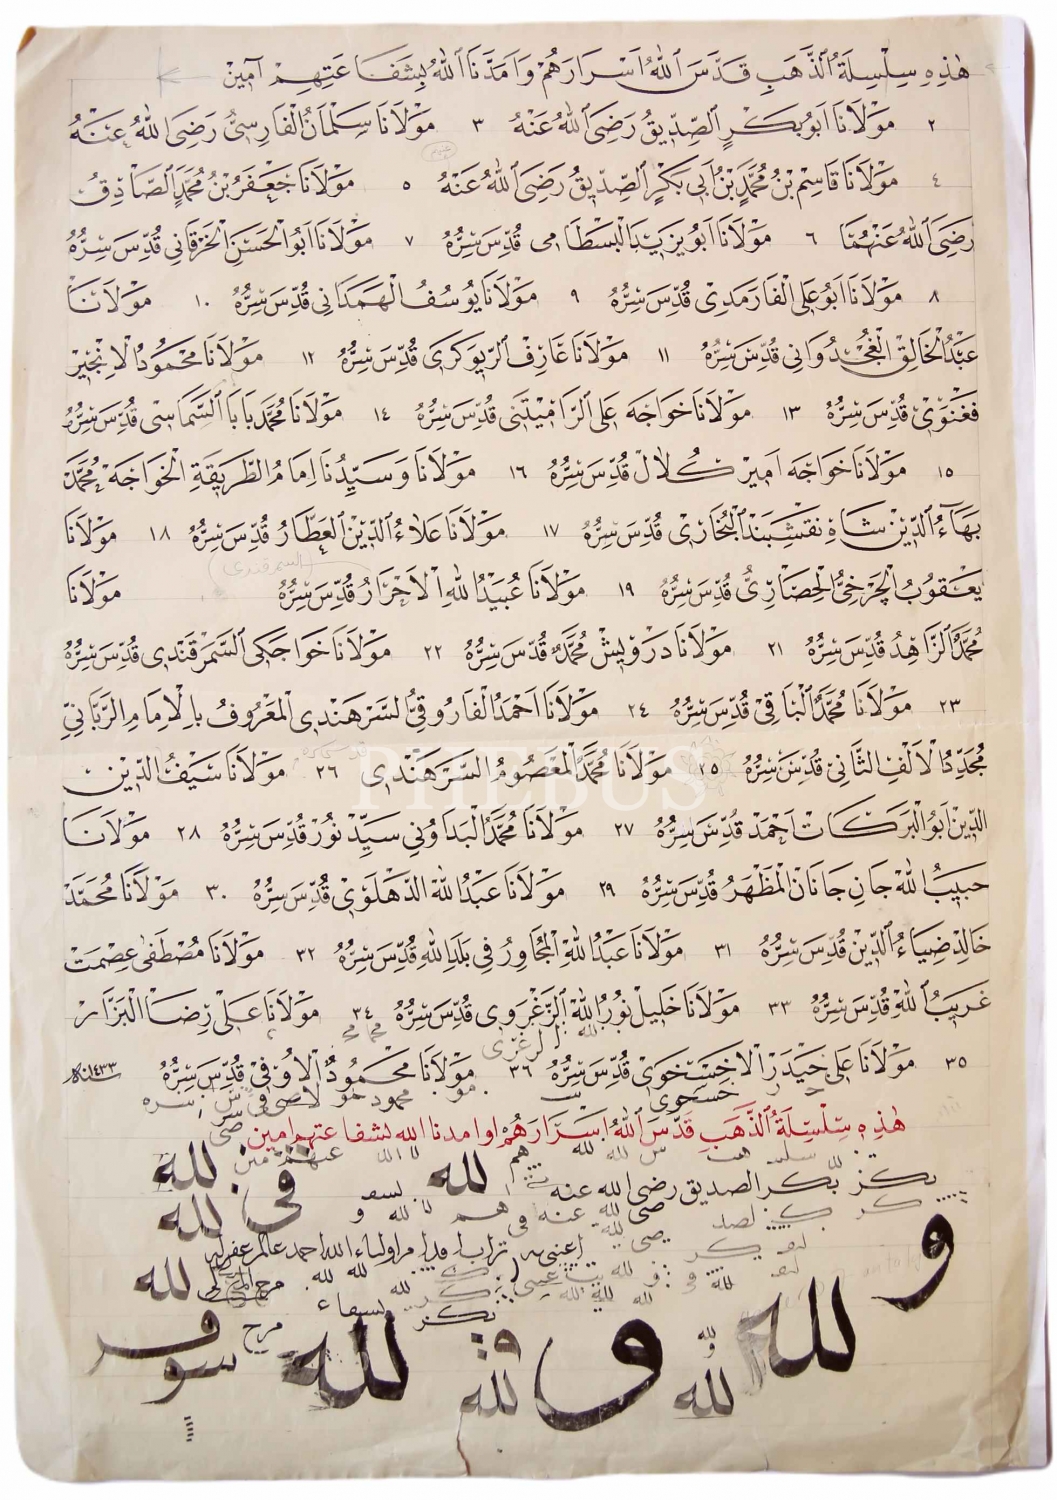 هٰذِهِ سِلْسِلَةُ الذَّهَبِ قَدَّسَ اللهُ اَسْرَارَهُمْ وَاَمَدَّنَا اللهُ بِشَفَاعَتِهِمْ اٰمِينْ
٢ مَوْلَانَا اَبُو بَكْرٍ الصِّدِّيقُ رَضِىَ اللهُ عَنْهُ ٣ مَوْلَانَا سَلْمَانُ الْفَارِسِىُّ رَضِىَ اللهُ عَنْهُ
٤ مَوْلَانَا قَاسِمْ بْنُ مُحَمَّدٍ بْنُ اَبِى بَكْرٍ الصِّدِّيقُ رَضِىَ اللهُ عَنْهُ ٥ مَوْلَانَا جَعْفَرُ بْنُ مُحَمَّدٍ الصَّادِقُ
رَضِىَ اللهُ عَنْهُمَا ٦ مَوْلَانَا اَبُو يَزِيدَ الْبَسْطَامِى قُدِّسَ سِرُّهُ ٧ مَوْلَانَا اَبُو الْحَسَنِ الْخَرْقَانِى قُدِّسَ سِرُّهُ
٨ مَوْلَانَا اَبُو عَلِى الْفَارْمَدِى قُدِّسَ سِرُّهُ ٩ مَوْلَانَا يُوسُفُ الْهَمَدَانِى قُدِّسَ سِرُّهُ ١٠ مَوْلَانَا
عَبْدُ الْخَالِقِ الْغُجْدُوَانِى قُدِّسَ سِرُّهُ ١١ مَوْلَانَا عَارِفْ الرِّيوَكَرِى قُدِّسَ سِرُّهُ ١٢ مَوْلَانَا مَحْمُودُ الْاِنْجِيرِ
فَغْنَوِىْ قُدِّسَ سِرُّهُ ١٣ مَوْلَانَا خَوَاجَه عَلِى الرَّامِيتَنِى قُدِّسَ سِرُّهُ ١٤ مَوْلَانَا مُحَمَّد بَابَا السَّمَاسِى قُدِّسَ سِرُّهُ
١٥ مَوْلَانَا خَوَاجَه اَمِيرْ كُلَالْ قُدِّسَ سِرُّهُ ١٦ مَوْلَانَا وَسَيِّدُنَا اِمَامُ الطَّرِيقَةِ الْخَوَاجَهْ مُحَمَّدْ
بَهَآءُ الدِّينْ شَاهِ نَقْشِبَنْد الْبُخَارِىْ قُدِّسَ سِرُّهُ ١٧ مَوْلَانَا عَلَاءُ الدِّينْ الْعَطَّارُ قُدِّسَ سِرُّهُ ١٨ مَوْلَانَا
السمرقندى
يَعْقُوبُ الْچَرْخِىُّ الْحِصَارِىُّ قُدِّسَ سِرُّهُ ١٩ مَوْلَانَا عُبَيْدُ اللهِ الْاَحْرَارُ قُدِّسَ سِرُّهُ مَوْلَانَا
مُحَمَّدُ الزَّاهِدُ قُدِّسَ سِرُّهُ ٢١ مَوْلَانَا دَرْوِيشْ مُحَمَّدْ قُدِّسَ سِرُّهُ ٢٢ مَوْلَانَا خَوَاجَكِى السَّمَرْقَنْدِى قُدِّسَ سِرُّهُ
٢٣ مَوْلَانَا مُحَمَّدْ الْبَاقِىْ قُدِّسَ سِرُّهُ ٢٤ مَوْلَانَا اَحْمَدُ الْفَارُوقِىُّ السَّرْهَنْدِى الْمَعْرُوفُ بِالْاِمَامِ الرَّبَّانِىِّ
مُجَدِّدُ الْاَلْفِ الثَّانِى قُدِّسَ سِرُّهُ ٢٥ مَوْلَانَا مُحَمَّدُ الْمَعْصُومُ السَّرْهَنْدِى ٢٦ مَوْلَانَا سَيْفُ الدِّينْ
PHEBUS
الدِّينْ اَبُو الْبَرَكَاتْ اَحْمَدْ قُدِّسَ سِرُّهُ ٢٧ مَوْلَانَا مُحَمَّدُ الْبَدَاوُنِى سَيِّدْ نُورْ قُدِّسَ سِرُّهُ ٢٨ مَوْلَانَا
حَبِيبُ اللهْ جَانِ جَانَانْ الْمَظْهَرُ قُدِّسَ سِرُّهُ ٢٩ مَوْلَانَا عَبْدُ اللهْ الدَّهْلَوِىْ قُدِّسَ سِرُّهُ ٣٠ مَوْلَانَا مُحَمَّدْ
خَالِدْ ضِيَاءُ الدِّينْ قُدِّسَ سِرُّهُ ٣١ مَوْلَانَا عَبْدُ اللهِ الْمُجَاوِرُ فِى بَلَدِ اللهِ قُدِّسَ سِرُّهُ ٣٢ مَوْلَانَا مُصْطَفٰى عِصْمَتْ
غَرِيبُ اللهْ قُدِّسَ سِرُّهُ ٣٣ مَوْلَانَا خَلِيلْ نُورُ اللهْ الزَّغْرَوِى قُدِّسَ سِرُّهُ ٣٤ مَوْلَانَا عَلِى رِضَا الْبَزَّارْ
٣٥ مَوْلَانَا عَلِى حَيْدَرْ الْاَخِسْخَوِىْ قُدِّسَ سِرُّهُ ٣٦ مَوْلَانَا مَحْمُودُ الْاُوفِىْ قُدِّسَ سِرُّهُ سنة ١٤٣٣
خسخوى
هٰذِهِ سِلْسِلَةُ الذَّهَبِ قَدَّسَ اللهُ اَسْرَارَهُمْ وامدنا الله بشفاعتهم امين
لله
بكر الصديق رضى الله عنه
لله
فى
لله
تراب اقدام اولياء الله احمد
لله
و
لله
و
لله
لله
لله